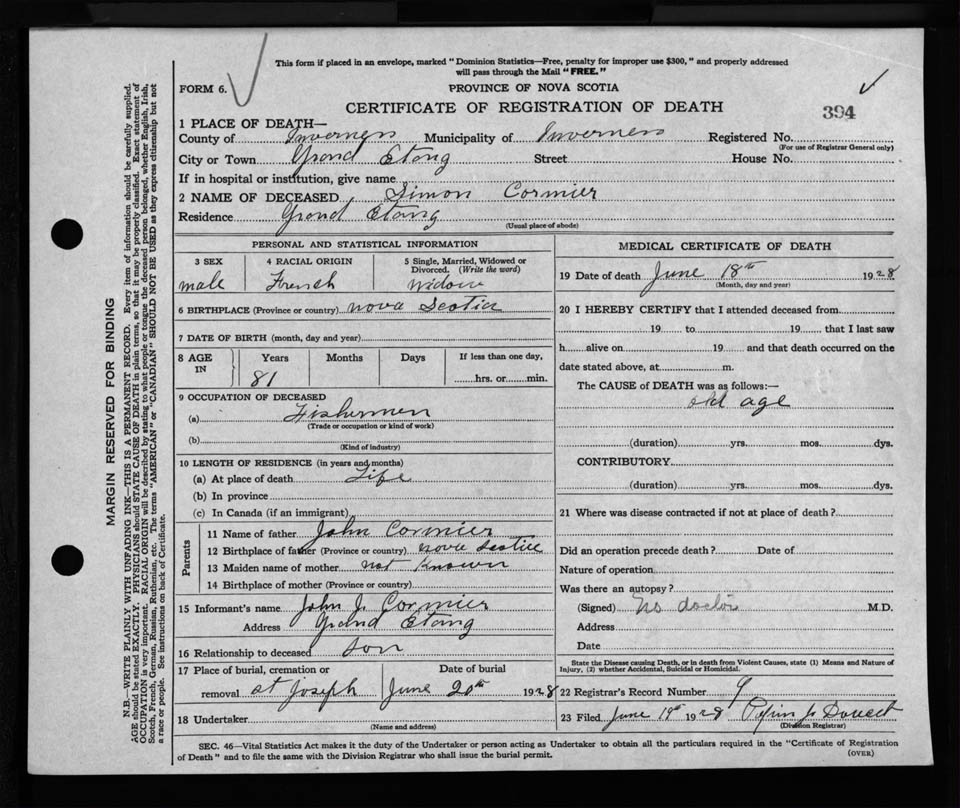 This form if placed in an envelope, marked "Dominion Statistics—Free, penalty for improper use $300," and properly addressed
will pass through the Mail "FREE."
FORM 6.
PROVINCE OF NOVA SCOTIA
CERTIFICATE OF REGISTRATION OF DEATH
394
1 PLACE OF DEATH—
County of Inverness Municipality of Inverness Registered No.
(For use of Registrar General only)
City or Town Grand Etang Street House No.
If in hospital or institution, give name
2 NAME OF DECEASED Simon Cormier
Residence Grand Etang
(Usual place of abode)
PERSONAL AND STATISTICAL INFORMATION
3 SEX 4 RACIAL ORIGIN 5 Single, Married, Widowed or
Divorced. (Write the word)
male French Widow
6 BIRTHPLACE (Province or country) Nova Scotia
7 DATE OF BIRTH (month, day and year)
8 AGE IN Years Months Days If less than one day,
81 hrs. or min.
9 OCCUPATION OF DECEASED
(a) Fishermen
(Trade or occupation or kind of work)
(b)
(Kind of industry)
10 LENGTH OF RESIDENCE (in years and months)
(a) At place of death Life
(b) In province
(c) In Canada (if an immigrant)
Parents
11 Name of father John Cormier
12 Birthplace of father (Province or country) Nova Scotia
13 Maiden name of mother not Known
14 Birthplace of mother (Province or country)
15 Informant's name John J. Cormier
Address Grand Etang
16 Relationship to deceased Son
17 Place of burial, cremation or Date of burial
removal at Joseph June 20th 1928
18 Undertaker
(Name and address)
MEDICAL CERTIFICATE OF DEATH
19 Date of death June 18th 1928
(Month, day and year)
20 I HEREBY CERTIFY that I attended deceased from
19 to 19 that I last saw
h alive on 19 and that death occurred on the
date stated above, at m.
The CAUSE of DEATH was as follows:—
old age
(duration) yrs. mos. dys.
CONTRIBUTORY
(duration) yrs. mos. dys.
21 Where was disease contracted if not at place of death?
Did an operation precede death? Date of
Nature of operation
Was there an autopsy?
(Signed) No doctor M.D.
Address
Date
State the Disease causing Death, or in death from Violent Causes, state (1) Means and Nature of
Injury, (2) whether Accidental, Suicidal or Homicidal.
22 Registrar's Record Number 9
23 Filed June 19th 1928 J. Doucet
(Division Registrar)
SEC. 46—Vital Statistics Act makes it the duty of the Undertaker or person acting as Undertaker to obtain all the particulars required in the "Certificate of Registration
of Death" and to file the same with the Division Registrar who shall issue the burial permit.
(OVER)
MARGIN RESERVED FOR BINDING
N.B.—WRITE PLAINLY WITH UNFADING INK—THIS IS A PERMANENT RECORD. Every item of information should be carefully supplied.
AGE should be stated EXACTLY. PHYSICIANS should STATE CAUSE OF DEATH in plain terms, so that it may be properly classified. Exact statement of
OCCUPATION is very important. RACIAL ORIGIN will be described by stating to what people or tongue the deceased person belonged, whether English, Irish,
Scotch, French, German, Russian, Ruthenian, etc. The terms "AMERICAN" or "CANADIAN" SHOULD NOT BE USED as they express citizenship but not
a race or people. See instructions on back of Certificate.